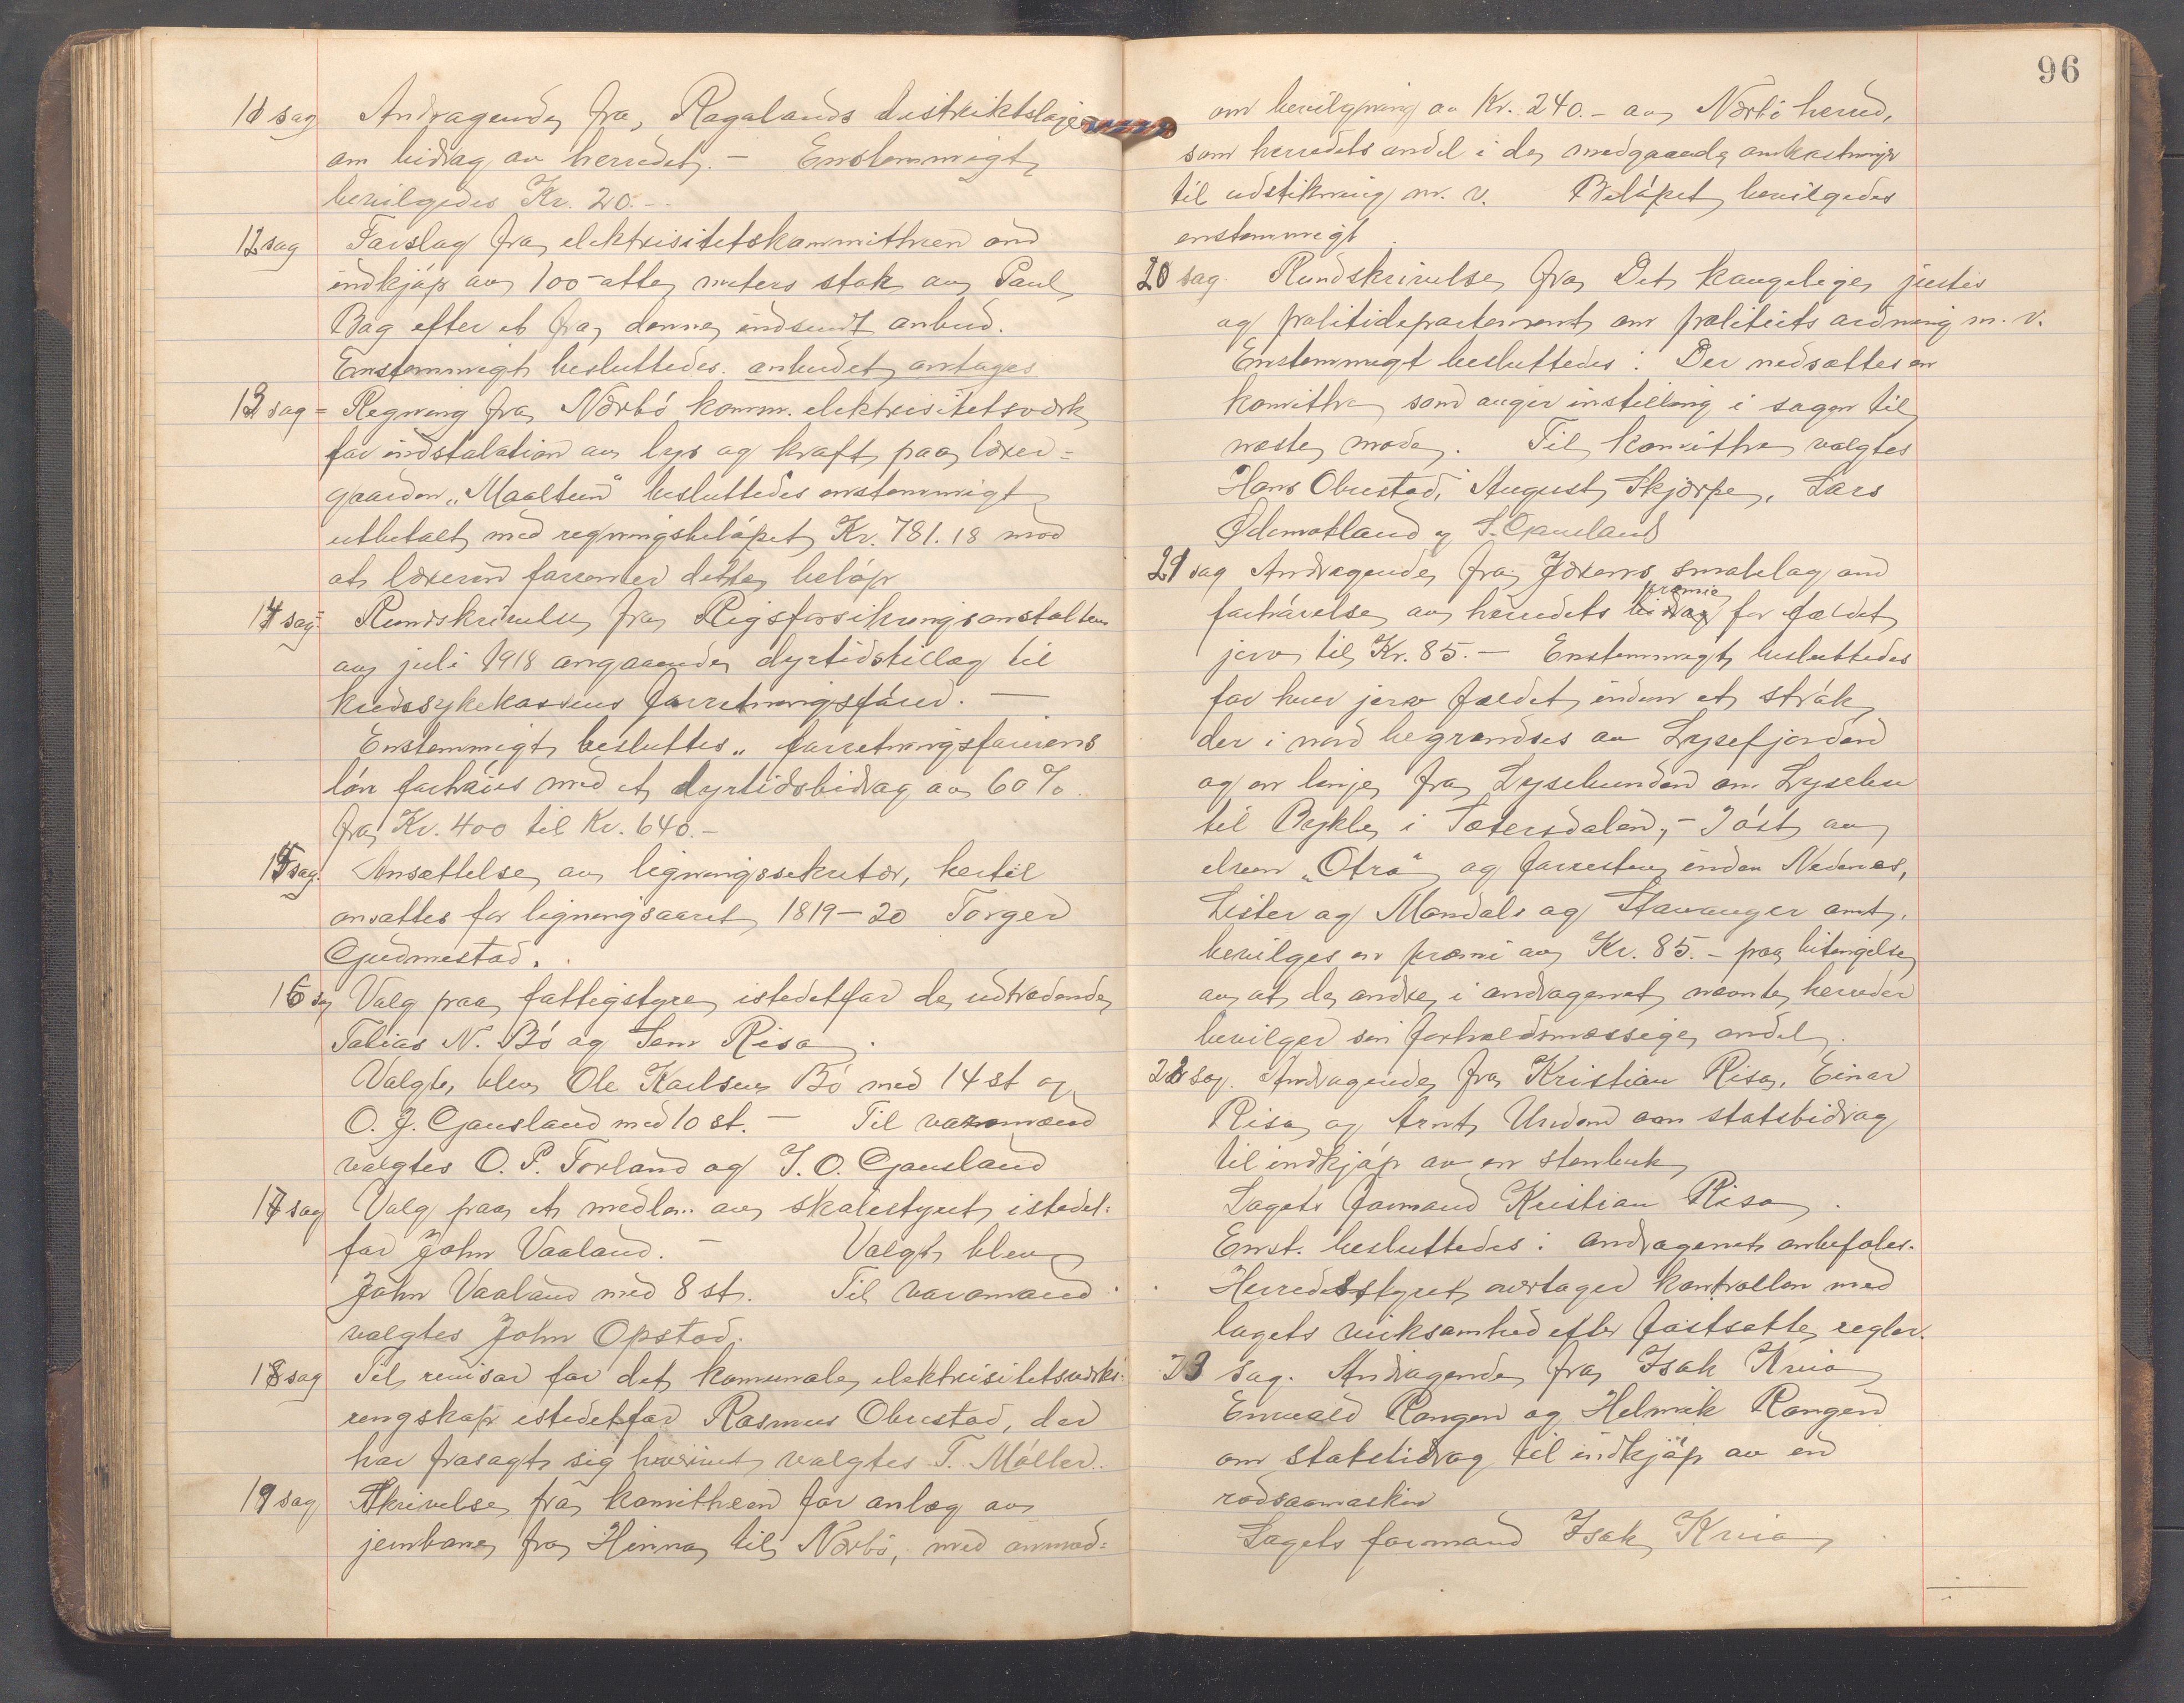 11 sag Andragende fra Rogalands distriktsloge
om bidrag av herredet. – Enstemmigt
bevilgedes Kr. 20.–
12 sag Forslag fra elektrisitetskommitheen om
indkjøp av 100 atte meters stok av Paul
Bag efter et fra denne indsendt anbud.
Enstemmigt besluttedes. anbudet antages
13 sag = Regning fra Nærbø komm. elektrisitetsverk
for indstalation av lys og kraft paa lærer=
gaarden „Maaltun" besluttedes enstemmigt
utbetalt med regningsbeløpet Kr. 781.18 mod
at læreren forrenter dette beløp
14 sag: Rundskrivelse fra Rigsforsikringsanstalten
av juli 1918 angaaende dyrtidstillæg til
kredssykekassens forretningsfører. –
Enstemmigt besluttes „ forretningsførerens
løn forhøies med et dyrtidsbidrag av 60%
fra Kr. 400 til Kr. 640.–
15 sag. Ansættelse av ligningssekretær, hertil
ansattes for ligningsaaret 1819–20 Torger
Gudmestad.
16 sag Valg paa fattigstyre istedetfor de udtrædende
Tobias N. Bø og Sem Risa.
Valgte blev Ole Karlsen Bø med 14 st og
O. J. Gausland med 10 st. – Til varamænd
valgtes O. P. Torland og J. O. Gausland
17 sag Valg paa et medlem av skolestyret istedet=
for John Vaaland. – Valgt blev
John Vaaland med 8 st. Til varamand
valgtes John Opstad.
18 sag Til revisor for det komunale elektrisitetsverks
rengskap istedetfor Rasmus Obrestad, der
har frasagt sig hvervet valgtes T. Møller.
19 sag Skrivelse fra komitheen for anlæg av
jernbane fra Hinna til Nærbø, med anmod=
96
om bevilgning av Kr. 240.– av Nærbø herred,
som herredets andel i de medgaaende omkostninger
til udstikning m. v. Beløpet bevilgedes
enstemmigt.
20 sag. Rundskrivelse fra Det kongelige justis
og politidepartement om politiets ordning m. v.
Enstemmigt besluttedes: Der nedsættes en
komithe som avgir instilling i sagen til
næste møde. Til komithe valgtes
Hans Obrestad, August Skjærpe, Lars
Ødemotland og S. Gausland
21 sag Andragende fra Jærens smalelag om
præmie
forhøielse av herredets bidrag for fældet
jerv til Kr. 85.– Enstemmigt besluttedes
for hver jerv fældet inden et strøk
der i nord begrændses av Lysefjorden
og en linje fra Lysebunden om Lysehei
til Bykle i Sætersdalen,– I øst av
elven „Otra" og forresten inden Nedenes,
Lister og Mandals og Stavanger amt,
bevilges en præmi av Kr. 85.– paa betingelse
av at de andre i andragenet nævnte herreder
bevilger sin forholdsmæssige andel.
22 sag. Andragende fra Kristian Risa, Einar
Risa og Arnt Undem om statsbidrag
til indkjøp av en stenbuk
Lagets formand Kristian Risa.
Enst. besluttedes: andragenet anbefales.
Herredsstyret overtager kontrollen med
lagets virksomhed efter fastsatte regler.
23 sag. Andragende fra Isak Kvia
Enevald Rongen og Helmik Rongen
om statsbidrag til indkjøp av en
radsaamaskin
Lagets formand Isak Kvia